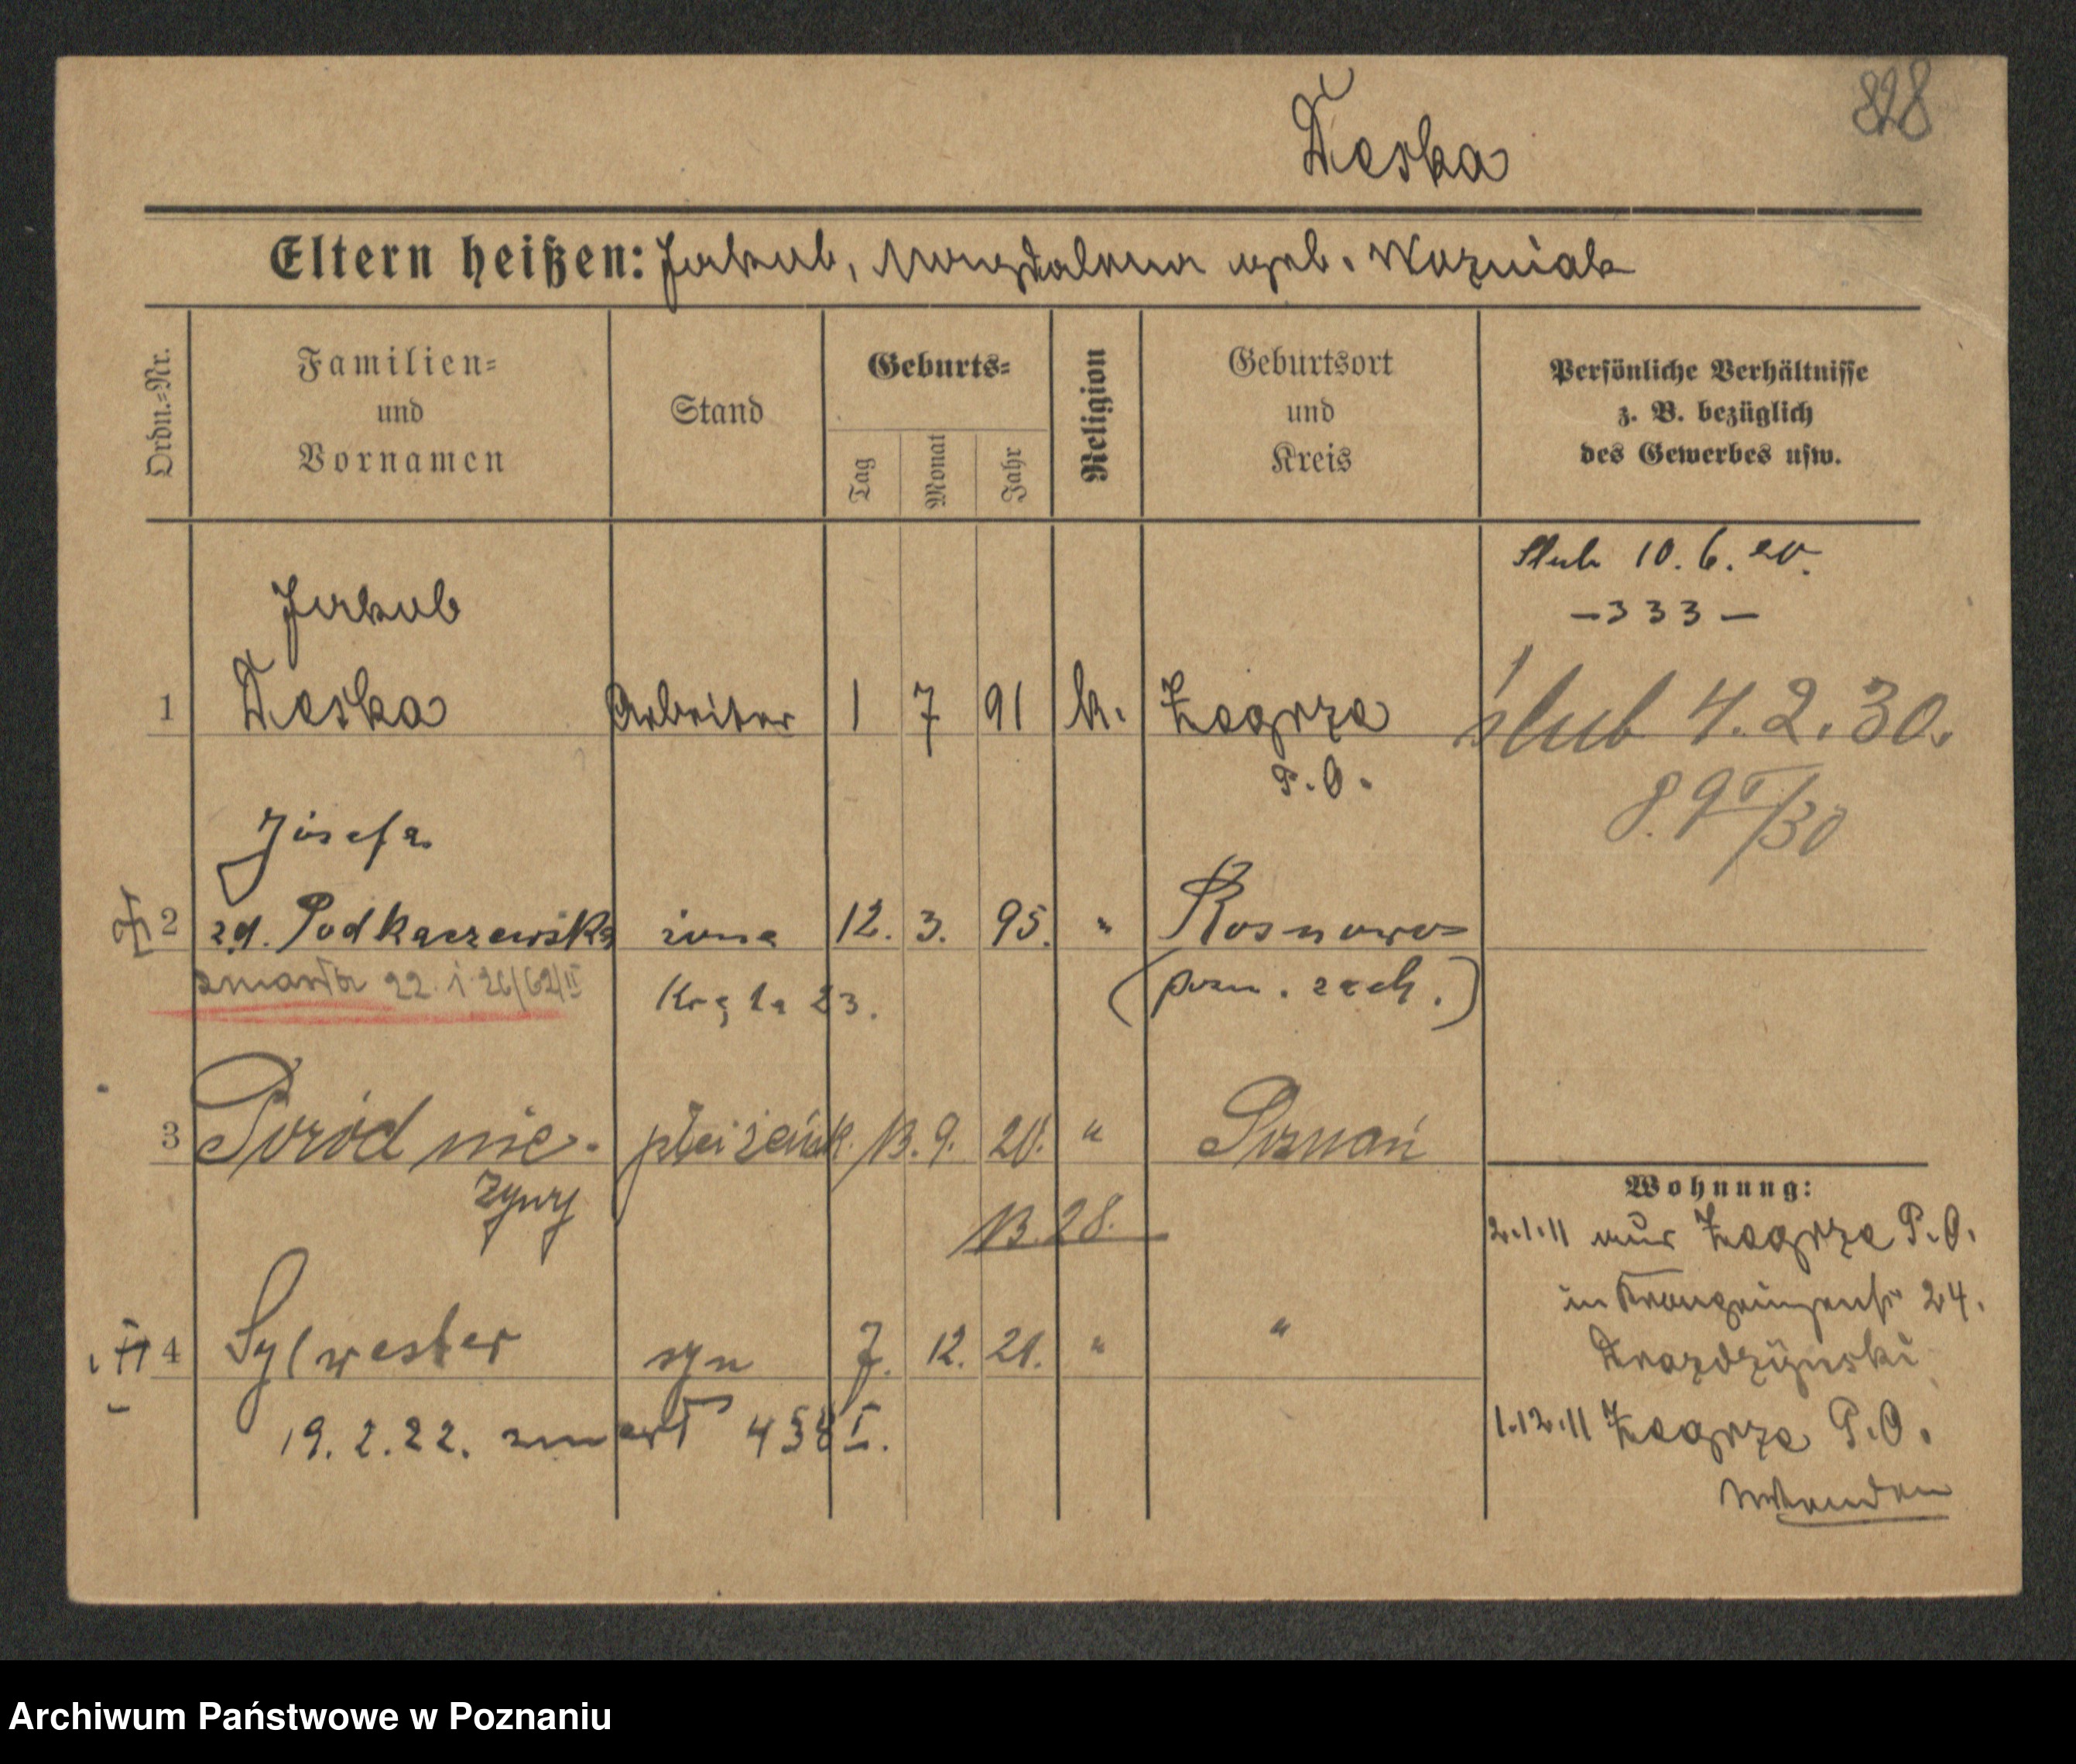 828
Deska
Eltern heißen: Jakob, Magdalena geb. Wozniak
Ordn.-Nr.
Familien-
und
Vornamen
Stand
Geburts-
Tag
Monat
Jahr
Religion
Geburtsort
und
Kreis
Persönliche Verhältnisse
z. B. bezüglich
des Gewerbes usw.
Slub 10.6.20.
— 333 —
Jakob
1 Deska Arbeiter 1 7 91 k. Zegrze
P.O.
ślub 4.2.30.
Józefa
2 zd. Podkaczewska żona 12. 3. 95. " Rosnowo
zmarła 22. 1. 26/62/II
23.
(pozn. zach.)
3 Poród nie- 13. 9. 20. " Poznań
żywy
13. 28.
4 Sylwester syn 7. 12. 21. " "
19.2.22. zmarł 458 I.
Wohnung:
2.1.11 aus Zegrze P.O.
in Kronprinzenstr 24.
Drozdzynski
1.12.11 Zegrze P.O.
Wenden
Archiwum Państwowe w Poznaniu